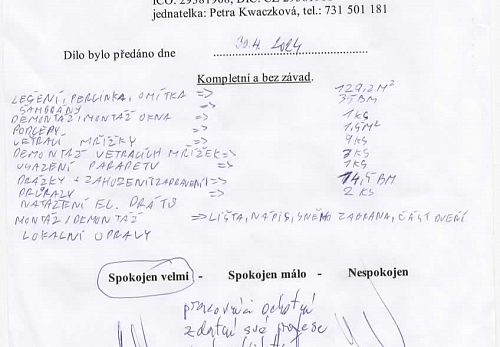 jednatelka: Petra Kwaczková, tel.: 731 501 181
Dílo bylo předáno dne 30.4. 2024
Kompletní a bez závad.
LEŠENÍ, PERLINKA, OMÍTKA => 129,2 M²
SAMBRÁNY => 35 BM
DEMONTÁŽ/MONTÁŽ OKNA => 1 KS
PODLEPY => 1,5 M²
VĚTRACÍ MŘÍŽKY => 9 KS
DEMONTÁŽ VĚTRACÍCH MŘÍŽEK => 7 KS
USAZENÍ PARAPETU => 1 KS
DRÁŽKY + ZAHOZENÍ (ZAPRAVENÍ) => 14,5 BM
PRŮRAZY => 2 KS
NATAŽENÍ EL. DRÁTŮ
MONTÁŽ/DEMONTÁŽ => LIŠTA, NÁPIS, SNĚHO ZÁBRANA, ČÁST DVEŘÍ
LOKÁLNÍ OPRAVY
Spokojen velmi - Spokojen málo - Nespokojen
pracovníci ochotní
zdatní své profese